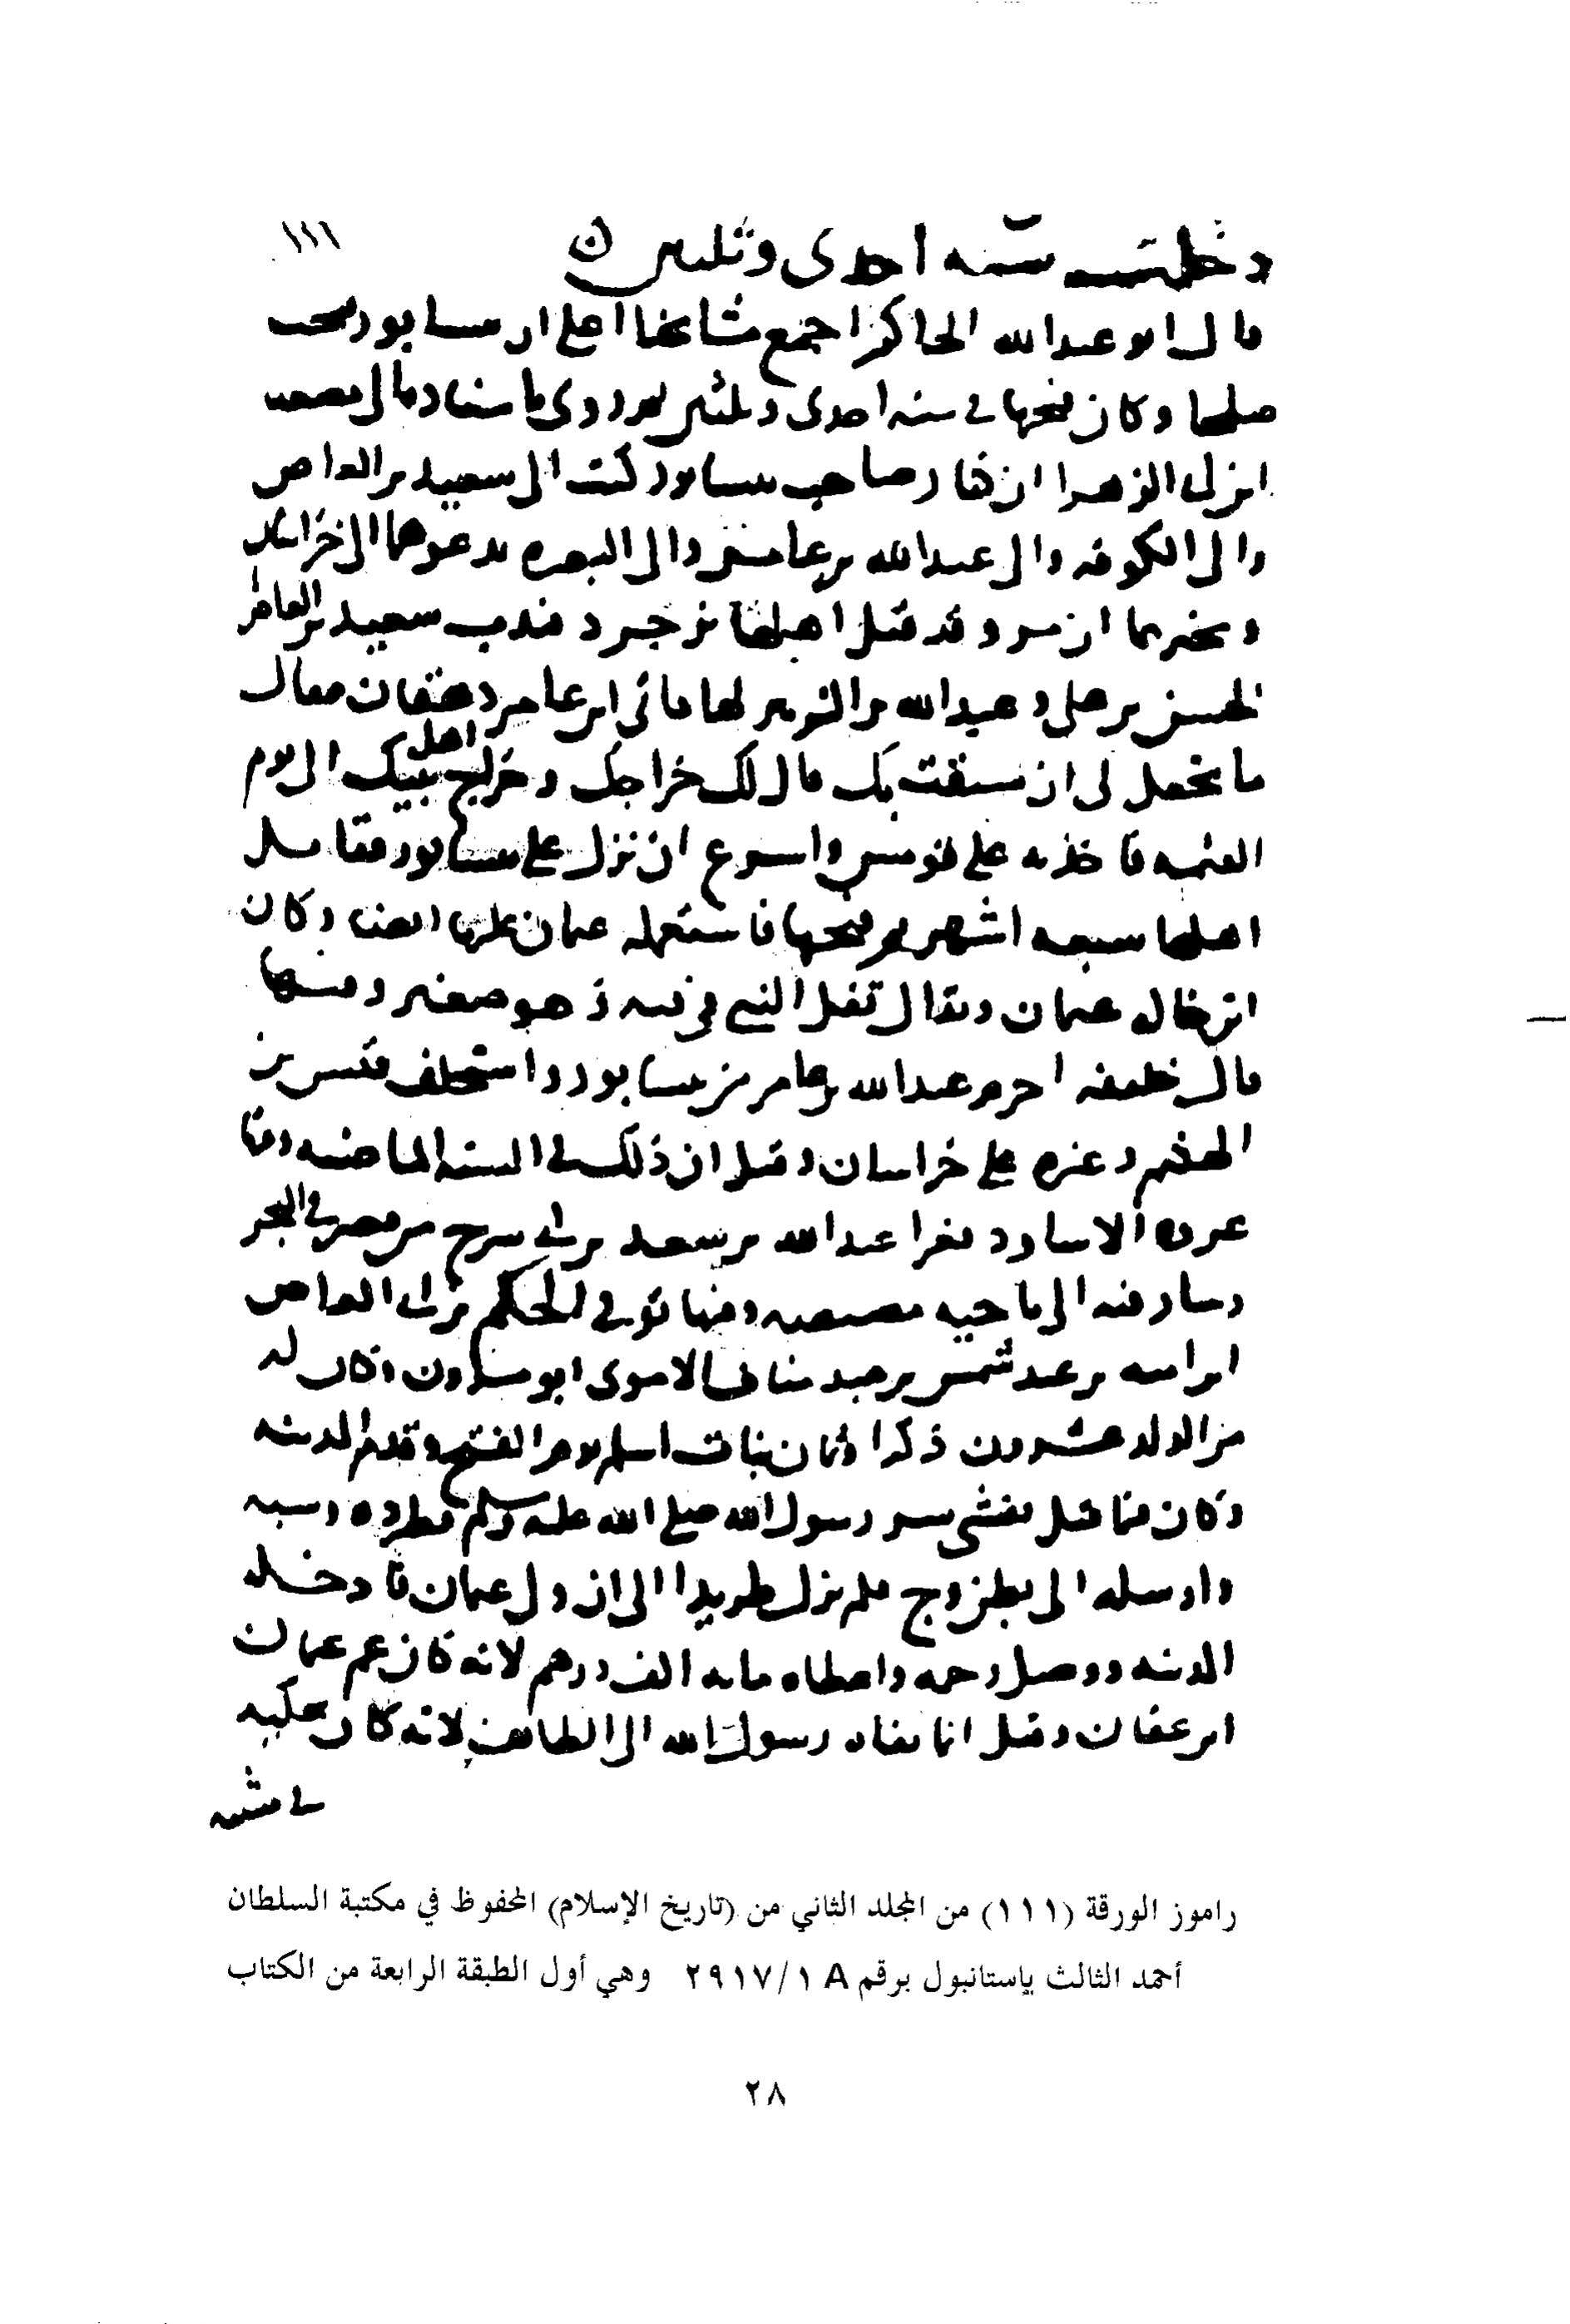 ١١١
دخلت سنة احدى وثلثين
قال ابو عبدالله الحاكم اجمع مشايخنا على ان نيسابور فتحت
صلحا وكان فتحها في سنه احدى وثلثين ثم روى باسناده الى مصعب
ابن ابي الزهرا ان كنار صاحب نيسابور كتب الى سعيد بن العاص
والى الكوفه والى عبدالله بن عامر والى البصره يدعوهما الى خراسان
ويخبرهما ان مرو قد قتل اهلها يزدجرد فندب سعيد بن العاص
الحسن بن علي وعبدالله بن الزبير لها فاتى ابن عامر دهقان فقال
ما تجعل لي ان سبقت بك قال لك خراجك وخراج اهل بيتك الى يوم
القيمه فاخذ به على قومس واسرع ان نزل على نيسابور فقاتل
اهلها سبعه اشهر ثم فتحها فاستعمله عثمان عليها ايضا وكان
ابن خاله عثمان ويقال تفل النبي في فيه وهو صغير وفيها
قال خليفه احرم عبدالله بن عامر من نيسابور واستخلف قيس بن
الهيثم وغيره على خراسان وقيل ان ذلك في السنه الماضيه وفيها
غزوة الاساود فغزا عبدالله بن سعد بن ابي سرح من مصر في البحر
وسار فيه الى ناحيه مصيصه وفيها توفي الحكم بن ابي العاص
ابن اميه بن عبد شمس بن عبد مناف الاموى ابو مروان وكان له
من الولد عشرون ذكرا وثمان بنات اسلم يوم الفتح وقدم المدينه
وكان فيما قيل يفشي سر رسول الله صلى الله عليه وسلم فطرده وسبه
وارسله الى بطن وج فلم يزل طريدا الى ان ولي عثمان فادخله
المدينه ووصل رحمه واعطاه مايه الف درهم لانه كان عم عثمان
ابن عفان وقيل انما نفاه رسول الله الى الطائف لانه كان يحكيه
في مشيه
راموز الورقة (١١١) من المجلد الثاني من (تاريخ الإسلام) المحفوظ في مكتبة السلطان
أحمد الثالث بإستانبول برقم ٢٩١٧/١ A وهي أول الطبقة الرابعة من الكتاب
٢٨